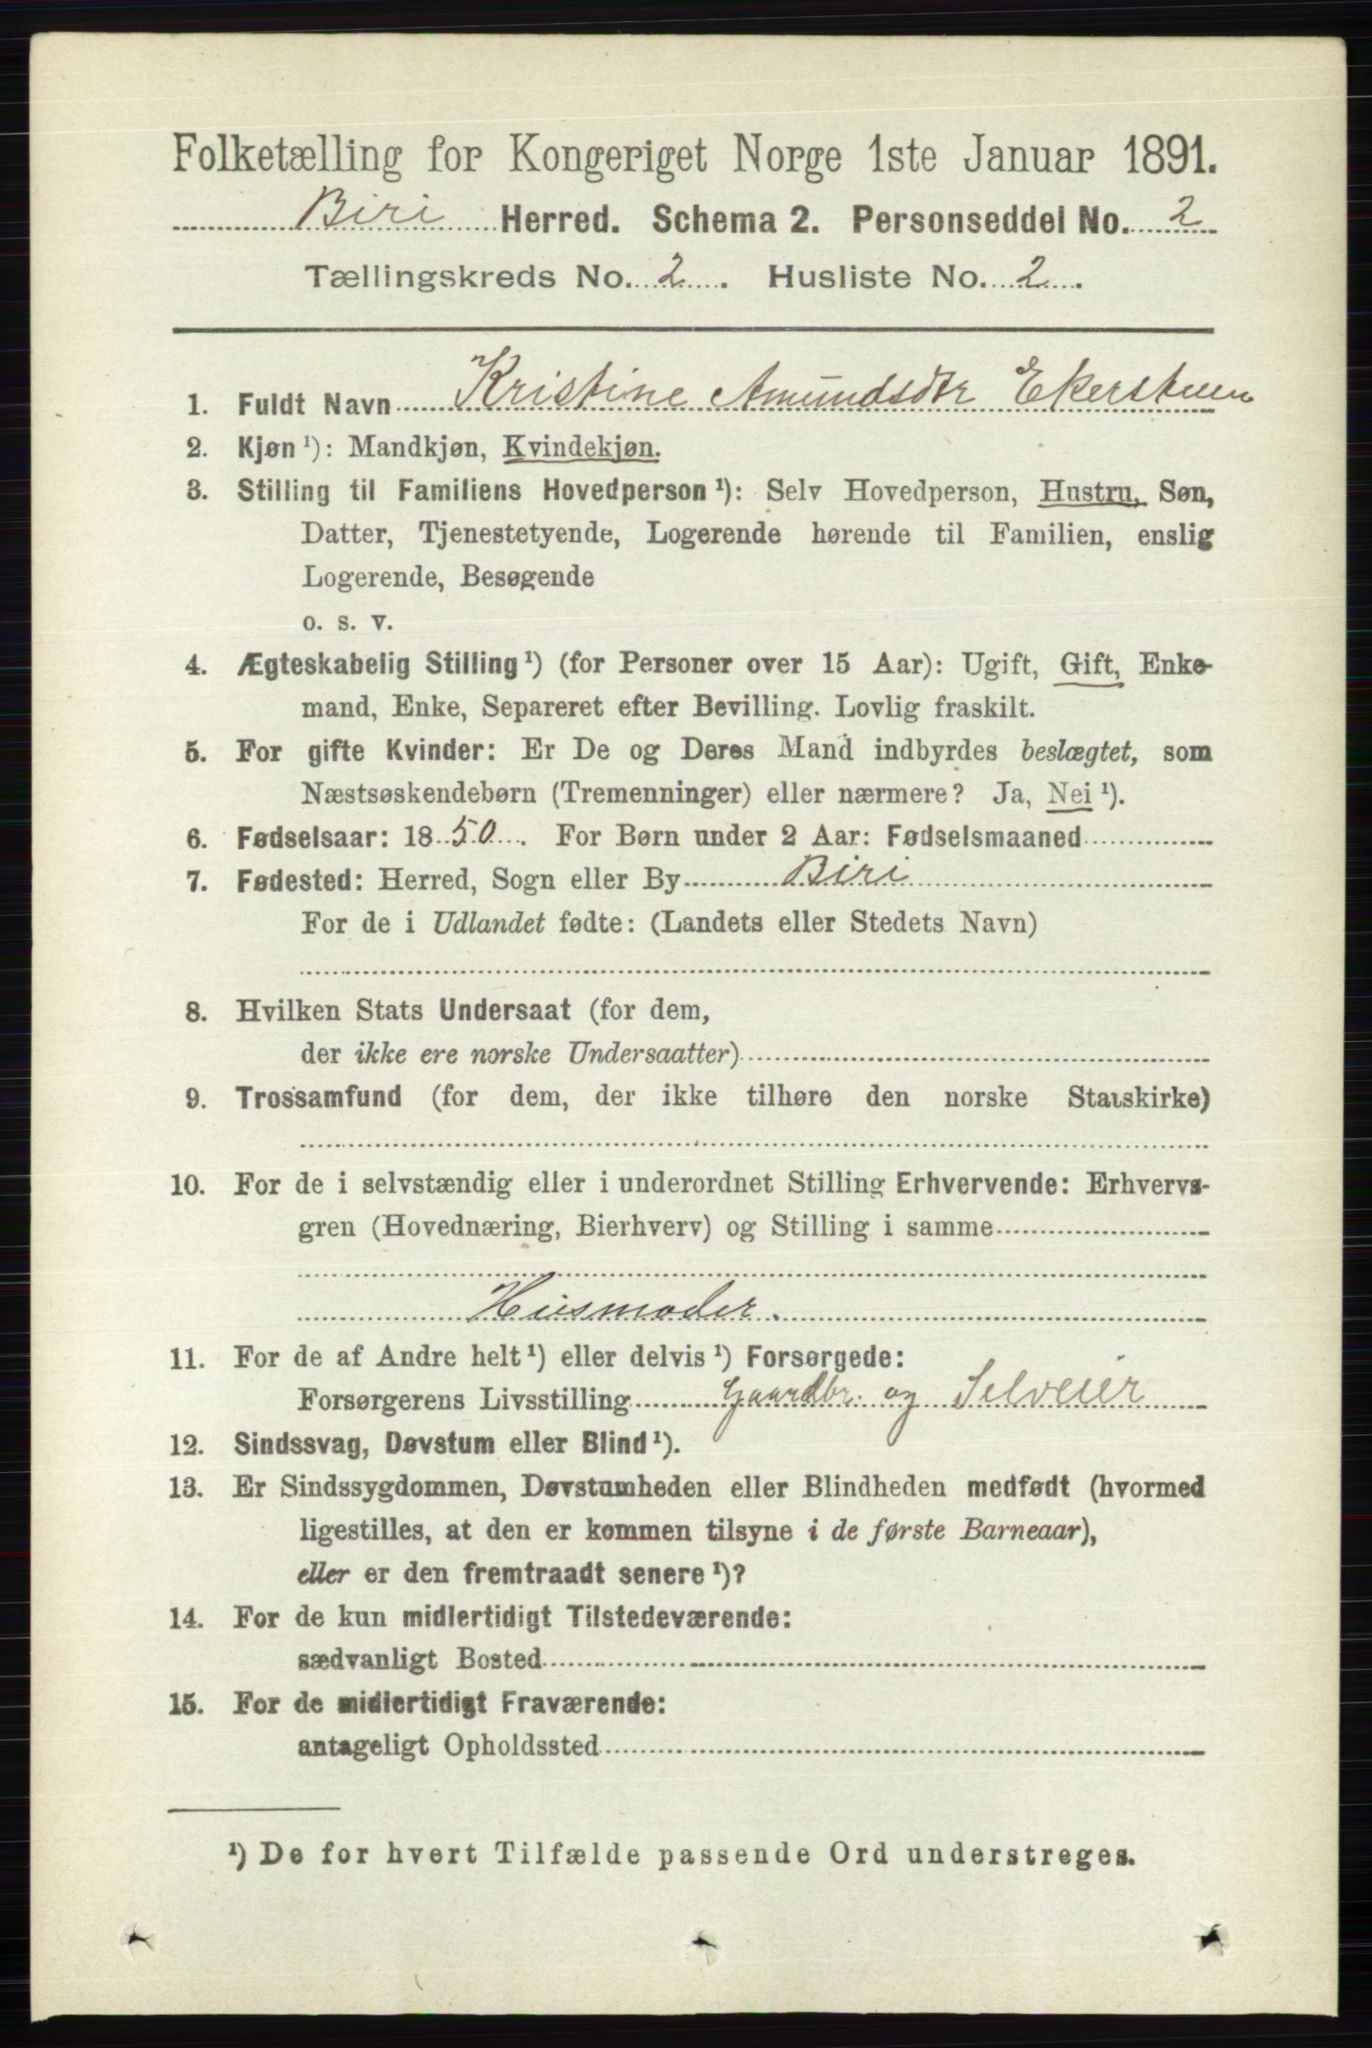 Folketælling for Kongeriget Norge 1ste Januar 1891.
Biri Herred. Schema 2. Personseddel No. 2
Tællingskreds No. 2. Husliste No. 2.
1. Fuldt Navn Kristine Amundsdtr Ekerstuen
2. Kjøn¹): Mandkjøn, Kvindekjøn.
3. Stilling til Familiens Hovedperson¹): Selv Hovedperson, Hustru, Søn,
Datter, Tjenestetyende, Logerende hørende til Familien, enslig
Logerende, Besøgende
o. s. v.
4. Ægteskabelig Stilling¹) (for Personer over 15 Aar): Ugift, Gift, Enke-
mand, Enke, Separeret efter Bevilling. Lovlig fraskilt.
5. For gifte Kvinder: Er De og Deres Mand indbyrdes beslægtet, som
Næstsøskendebørn (Tremenninger) eller nærmere? Ja, Nei¹).
6. Fødselsaar: 1850. For Børn under 2 Aar: Fødselsmaaned
7. Fødested: Herred, Sogn eller By Biri
For de i Udlandet fødte: (Landets eller Stedets Navn)
8. Hvilken Stats Undersaat (for dem,
der ikke ere norske Undersaatter)
9. Trossamfund (for dem, der ikke tilhøre den norske Statskirke)
10. For de i selvstændig eller i underordnet Stilling Erhvervende: Erhvervs-
gren (Hovednæring, Bierhverv) og Stilling i samme
Husmoder.
11. For de af Andre helt¹) eller delvis¹) Forsørgede:
Forsørgerens Livsstilling Gaardbr. og Selveier
12. Sindssvag, Døvstum eller Blind¹).
13. Er Sindssygdommen, Døvstumheden eller Blindheden medfødt (hvormed
ligestilles, at den er kommen tilsyne i de første Barneaar),
eller er den fremtraadt senere¹)?
14. For de kun midlertidigt Tilstedeværende:
sædvanligt Bosted
15. For de midlertidigt Fraværende:
antageligt Opholdssted
¹) De for hvert Tilfælde passende Ord understreges.